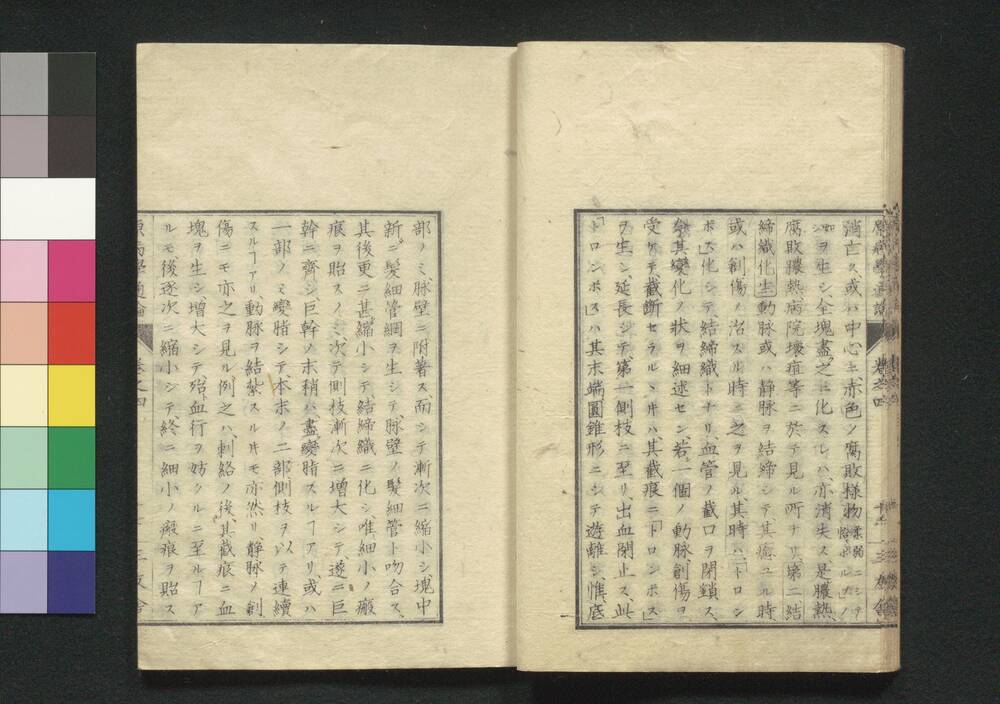 消亡ス、或ハ中心ニ、赤色ノ腐敗様物柔弱ニシテ恰モポルレノ
如ヲ生シ、全塊盡ク之ニ化スレハ、亦消失ス是膿熱、
腐敗膿熱病院壊疽等ニ於テ見ル所ナリ、第二結
締織化生動脉或ハ静脉ヲ結締シテ其癒ユル時
或ハ創傷ノ治スル時ニ之ヲ見ル、其時ハ、「トロン
ボス」化シテ、結締織トナリ、血管ノ截口ヲ閉鎖ス、
今其變化ノ状ヲ細述セン、若シ一個ノ動脉、創傷ヲ
受ケテ、截断セラルヽ片ハ、其截痕ニ、「トロンボス」
ヲ生シ、延長シテ、第一側枝ニ至リ出血閉止ス、此
「トロンボス」ハ其末端、圓錐形ニシテ遊離シ、惟底
部ノミ、脉壁ニ附著ス、而シテ漸次ニ縮小シ塊中
新ニ髪細管網ヲ生シテ、脉壁ノ髪細管ト吻合ス、
其後更ニ甚縮小シテ、結締織ニ化シ唯細小ノ瘢
痕ヲ貽スノミ、次テ側枝漸次ニ増大シテ、遂ニ巨
幹ニ齊シ巨幹ノ末稍ハ、盡變脂スルヿアリ或ハ
一部ノミ變脂シテ、本末ノ二部側枝ヲ以テ連續
スルヿアリ、動脉ヲ結紮スル片モ亦然リ、静脉ノ創
傷ニモ亦之ヲ見ル例之ハ、刺絡ノ後、其截痕ニ血
塊ヲ生シ、増大シテ殆血行ヲ妨クルニ至ルヿア
ルモ、後逐次ニ縮小シテ、終ニ細小ノ瘢痕ヲ貽ス
原病學通論 卷之四